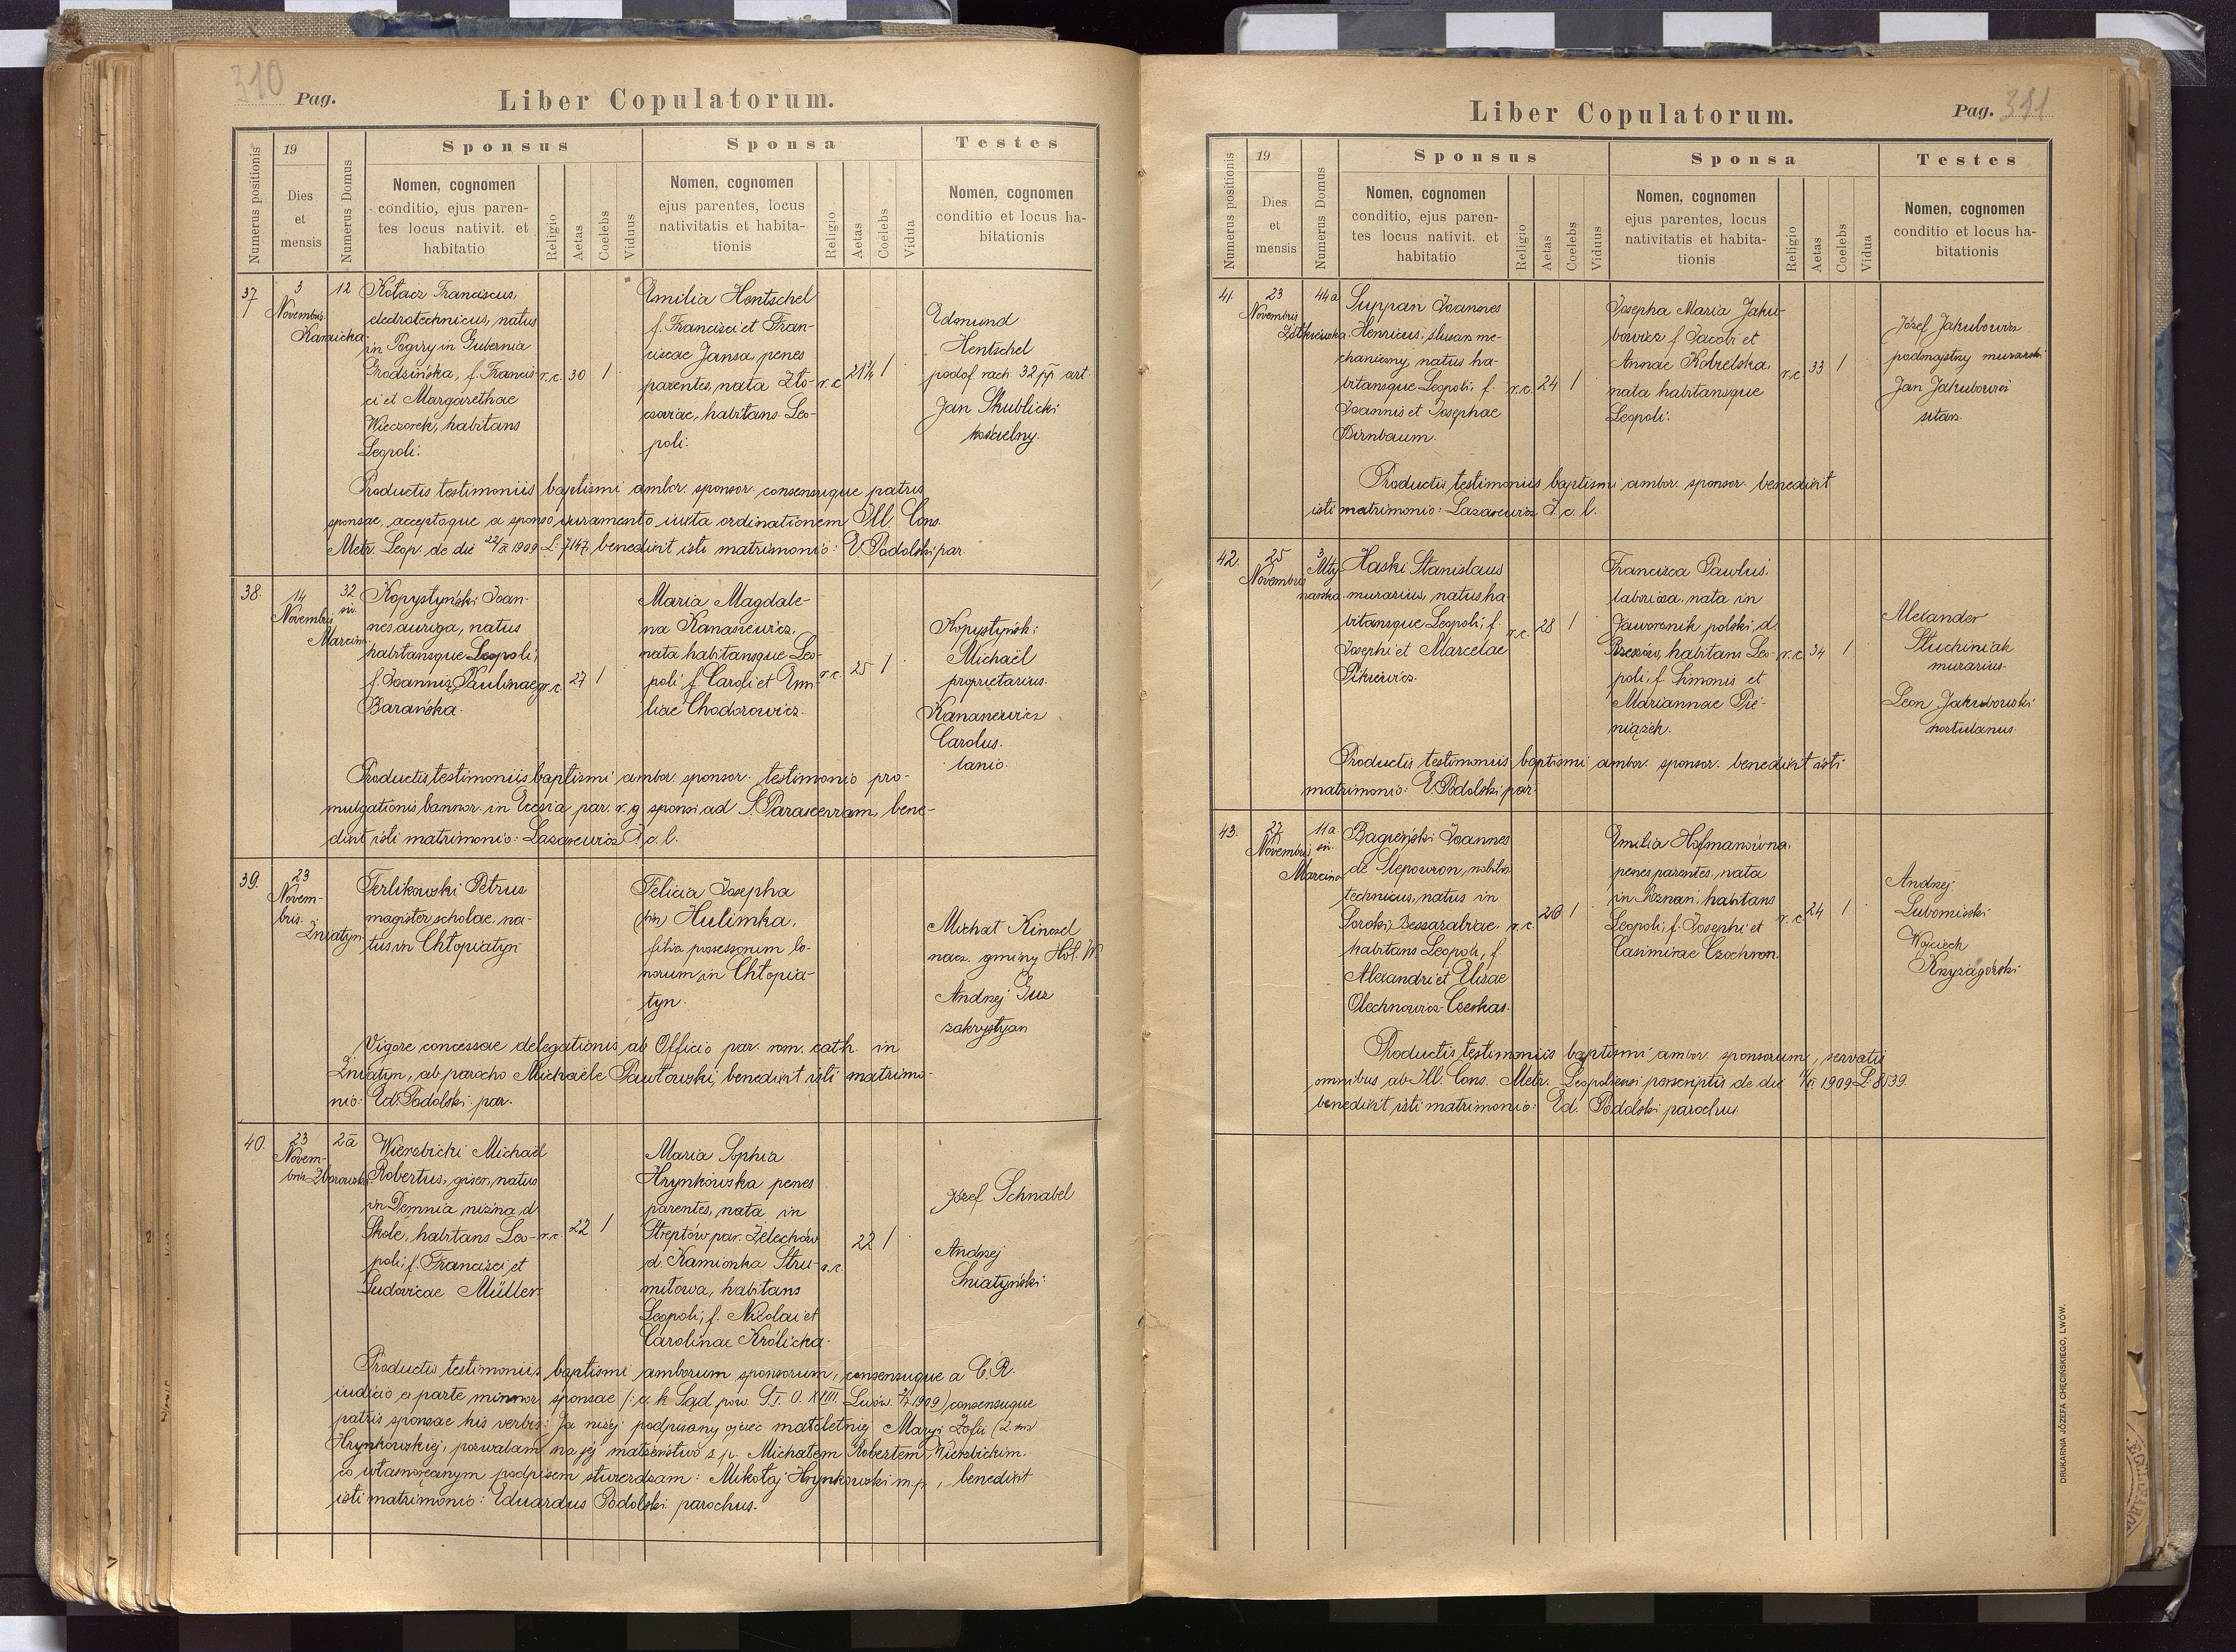 310 Pag. Liber Copulatorum.
Numerus positionis
19
Dies
et
mensis
Numerus Domus
Sponsus
Nomen, cognomen
conditio, ejus paren-
tes locus nativit. et
habitatio
Religio
Aetas
Coelebs
Viduus
Sponsa
Nomen, cognomen
ejus parentes, locus
nativitatis et habita-
tionis
Religio
Aetas
Coelebs
Vidua
Testes
Nomen, cognomen
conditio et locus ha-
bitationis
37
3
Novembris
12
Kołacz Franciscus,
electrotechnicus, natus
in Pogiry in Gubernia
Grodzińska, f. Francis-
ci et Margarethae
Wieczorek, habitans
Leopoli.
r.c. 30 1
Emilia Hentschel
f. Francisci et Fran-
ciscae Jansa, penes
parentes, nata Zło-
czoviae, habitans Leo-
poli.
r.c. 21¾ 1
Edmund
Hentschel
podof. rach. 32 pp art.
Jan Skublicki
kościelny.
Productis testimoniis baptismi ambor. sponsor. consensuque patris
sponsae, acceptoque a sponso iuramento iuxta ordinationem Ill. Cons.
Metr. Leop. de die 22/X 1909 L: 7147, benedixit isti matrimonio: E. Podolski par.
38.
14
Novembris
Marcina
32
Kopystyński Joan-
nes auriga, natus
habitansque Leopoli,
f. Joannis, Paulinaeq.
Barańska.
r.c. 27 1
Maria Magdale-
na Kanasiewicz,
nata habitansque Leo-
poli f. Caroli et Emi-
liae Chodorowicz.
r.c. 25 1
Kopystyński
Michaël
proprietarius.
Kananiewicz
Carolus.
lanio.
Productis testimoniis baptismi ambor. sponsor. testimonio pro-
mulgationis bannor. in Ecclesia par. r. g. sponsi ad S. Parascevam, bene-
dixit isti matrimonio: Lazarewicz
39.
23
Novem-
bris.
Żniatyn
Terlikowski Petrus
magister scholae, na-
tus in Chłopiatyn
Felicia Josepha
Hulimka,
filia possessorum bo-
norum in Chłopia-
tyn.
Michał Kinzel
nacz. gminy
Andrzej Guz
zakrystyan
Vigore concessae delegationis ab Officio par. rom. cath. in
Żniatyn, ab parocho Michaële Pawłowski, benedixit isti matrimo-
nio: Ed. Podolski par.
40.
23
Novem-
bris
2a
Wierzbicki Michaël
Robertus, giser, natus
in Demnia niżna d.
Skole, habitans Leo-
poli; f. Francisci et
Ludovicae Müller
r.c. 22 1
Maria Sophia
Hrynkowska penes
parentes, nata in
Streptów par. Żelechów
d. Kamionka Stru-
miłowa, habitans
Leopoli; f. Nicolai et
Carolinae Królicka.
r.c. 22 1
Józef Schnabel
Andrzej
Śniatyński.
Productis testimoniis baptismi amborum sponsorum, consensuque a C. R.
iudicio ex parte minor. sponsae /: c. k. Sąd pow. S. I. O. XVIII. Lwów 1909) consensuque
patris sponsae his verbis: Ja niżej podpisany ojciec małoletniej Maryi Zofii (2. im.)
Hrynkowskiej, pozwalam na jej małżeństwo z p. Michałem Robertem Wierzbickim.
co własnoręcznym podpisem stwierdzam: Mikołaj Hrynkowski m.p., benedixit
isti matrimonio: Eduardus Podolski parochus.
Liber Copulatorum. Pag. 311
Numerus positionis
19
Dies
et
mensis
Numerus Domus
Sponsus
Nomen, cognomen
conditio, ejus paren-
tes locus nativit. et
habitatio
Religio
Aetas
Coelebs
Viduus
Sponsa
Nomen, cognomen
ejus parentes, locus
nativitatis et habita-
tionis
Religio
Aetas
Coelebs
Vidua
Testes
Nomen, cognomen
conditio et locus ha-
bitationis
41.
23
Novembris
44a
Suppan Joannes
Henricus, ślusarz me-
chaniczny, natus ha-
bitansque Leopoli, f.
Joannis et Josephae
Birnbaum.
r.c. 24 1
Josepha Maria Jaku-
bowicz f. Jacobi et
Annae Kobrelska,
nata habitansque
Leopoli.
r.c. 33 1
Józef Jakubowicz
podmajstrzy murarski
Jan Jakubowicz
Productis testimoniis baptismi ambor. sponsor. benedixit
isti matrimonio: Lazarewicz
42.
25
Novembris
3
Haski Stanislaus
murarius, natus ha-
bitansque Leopoli, f.
Josephi et Marcelae
Pikiewicz.
r.c. 28 1
Francisca Pawlus.
laboriosa, nata in
Jawornik polski, d.
Rzeszów, habitans Leo-
poli, f. Simonis et
Mariannae Pie-
niążek.
r.c. 34 1
Alexander
Słuchiniak
murarius.
Leon Jakubowski
hortulanus.
Productis testimoniis baptismi ambor. sponsor. benedixit isti
matrimonio: E. Podolski par.
43.
27
Novembris
Marcina
11a
Bagieński Joannes
de Slepowron, nobilis
technicus, natus in
Soroki Bessarabiae,
habitans Leopoli, f.
Alexandri et Elisae
Olechnowicz-Czeskas.
r.c. 26 1
Emilia Hofmanówna,
penes parentes, nata
in Poznań, habitans
Leopoli, f. Josephi et
Casimirae Czochron.
r.c. 24 1
Andrzej
Lubomirski
Wojciech
Krzyżagórski
Productis testimoniis baptismi ambor. sponsorum, servatis
omnibus ab Ill. Cons. Metr. Leopoliensi perscriptis de die 1909 L. 8539.
benedixit isti matrimonio: Ed. Podolski parochus
DRUKARNIA JÓZEFA CHĘCIŃSKIEGO, LWÓW.